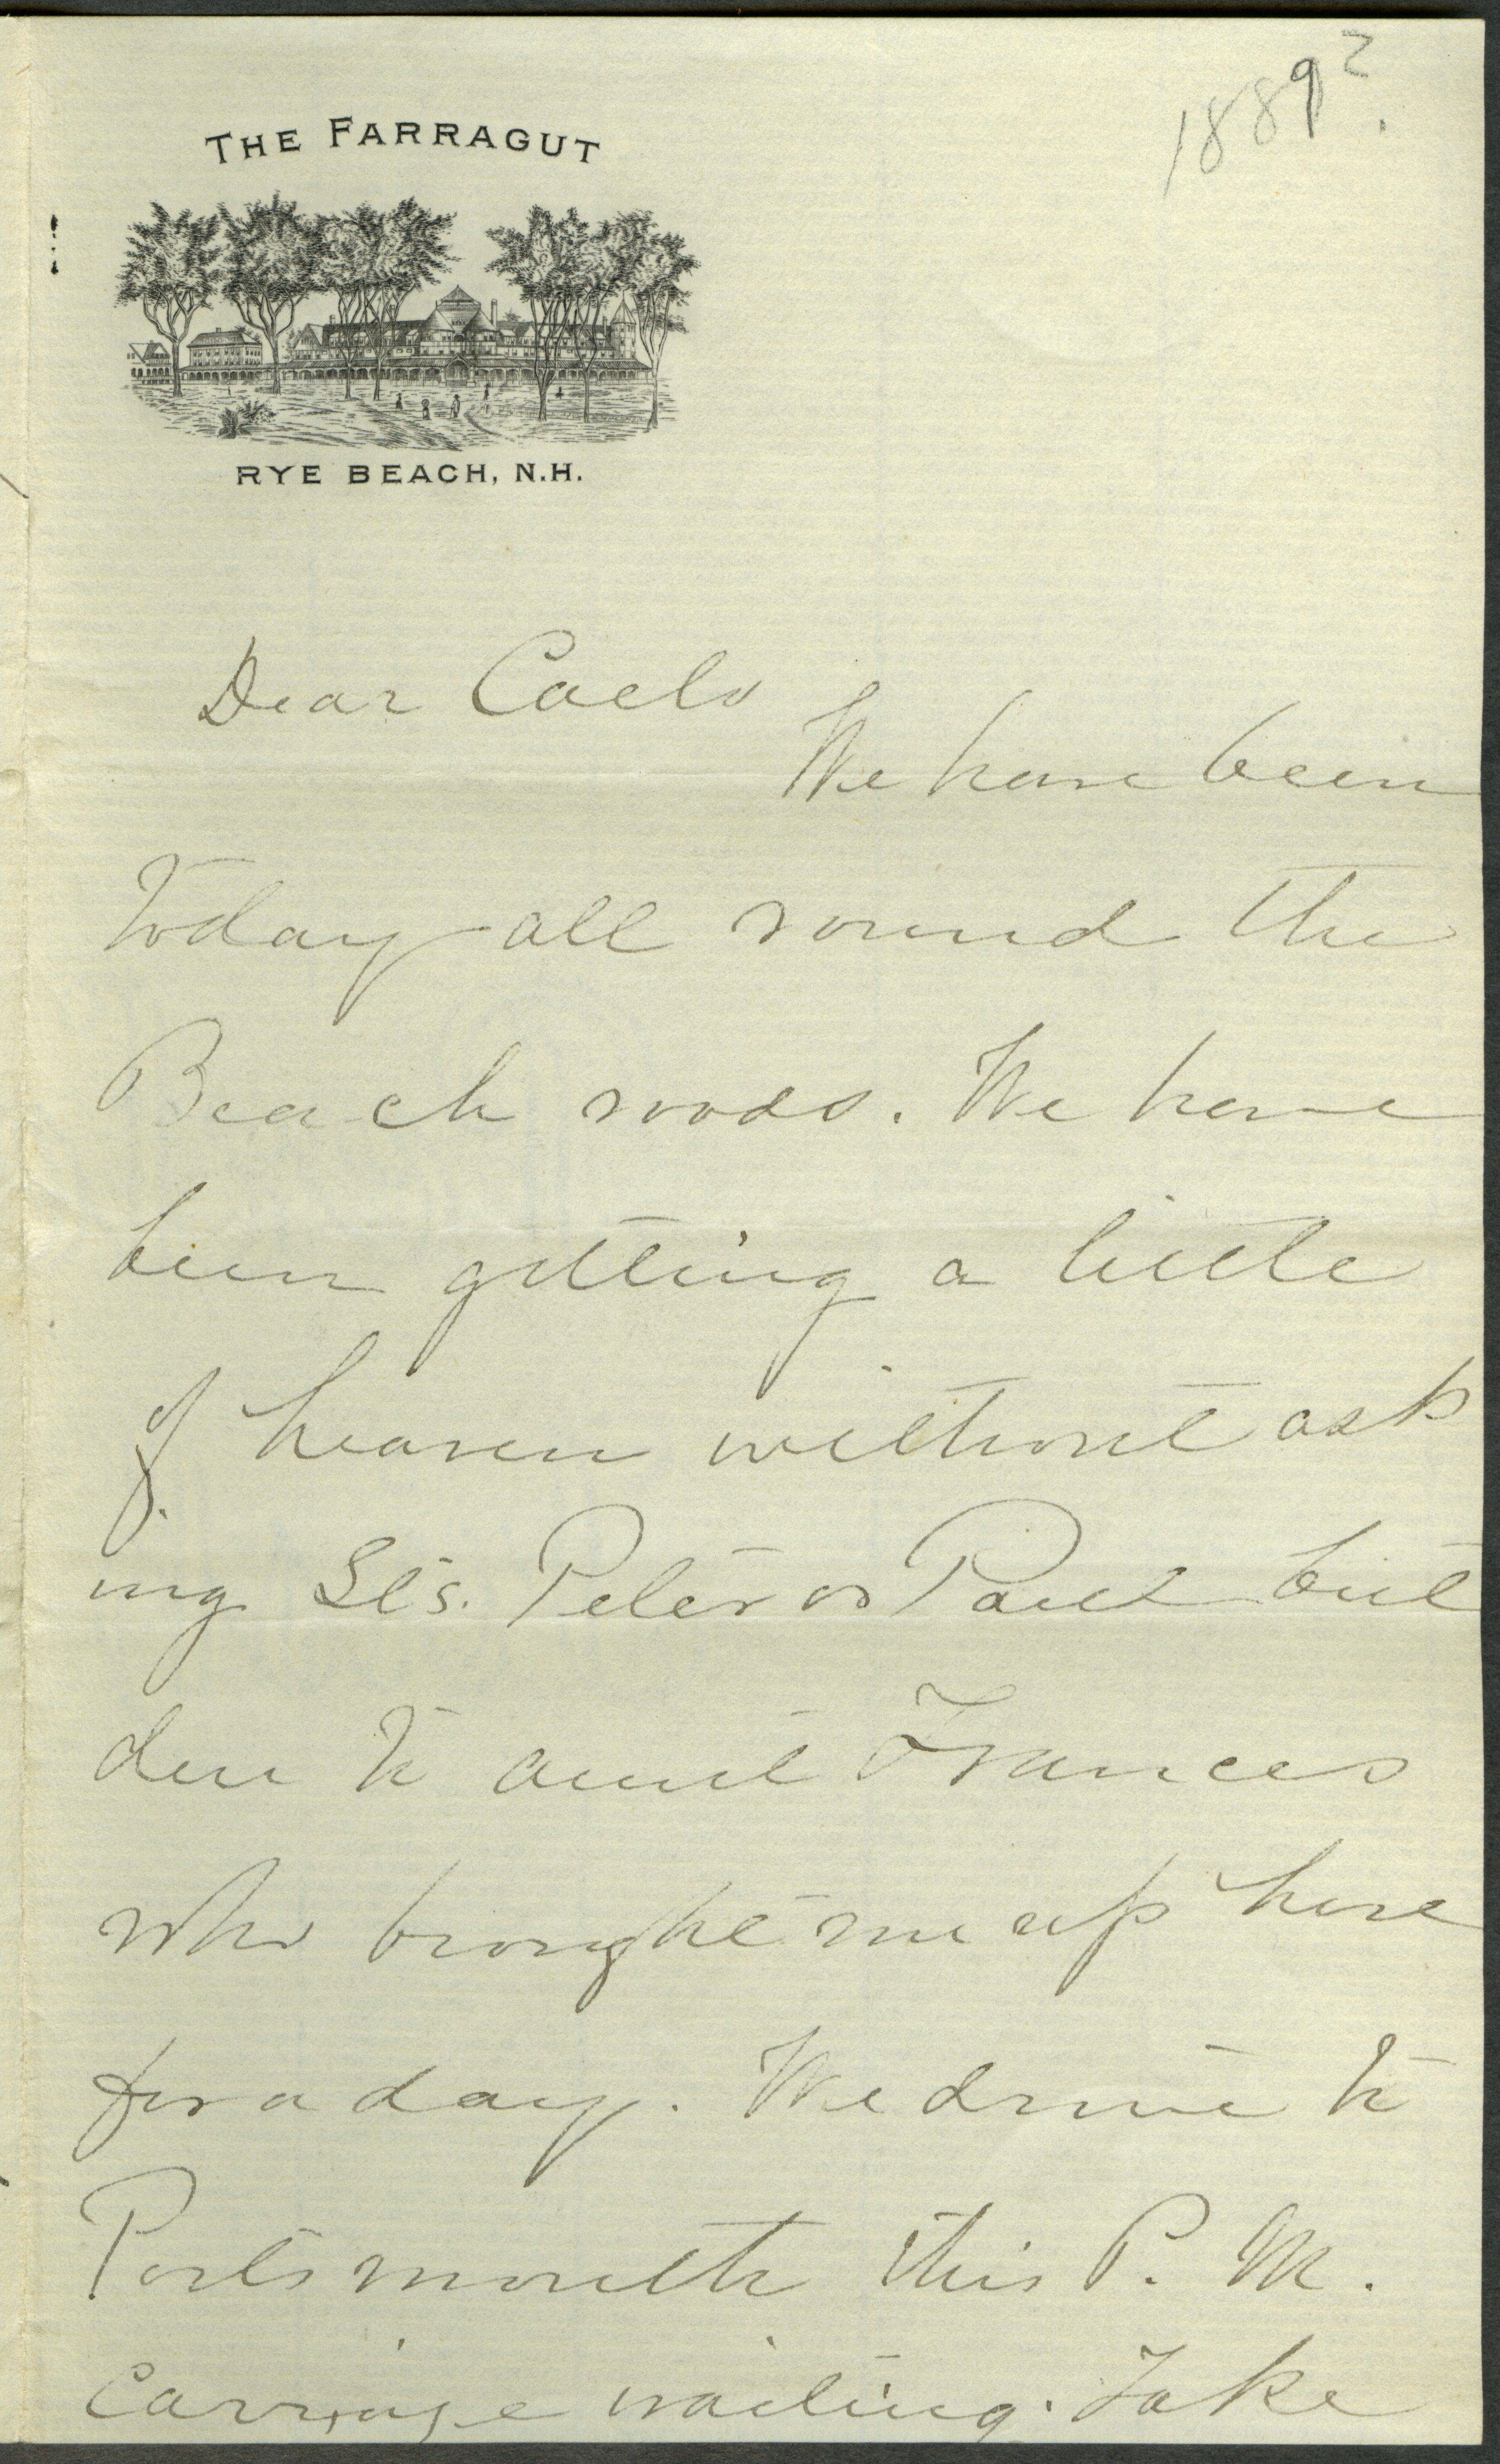 1889?
THE FARRAGUT
RYE BEACH, N.H.
Dear Caelo
We have been
today all round the
Beach roads. We have
been getting a little
of heaven without ask
ing Sts. Peter or Paul but
due to aunt Frances
who brought me up here
for a day. We drive to
Portsmouth this P. M.
Carriage waiting. Take